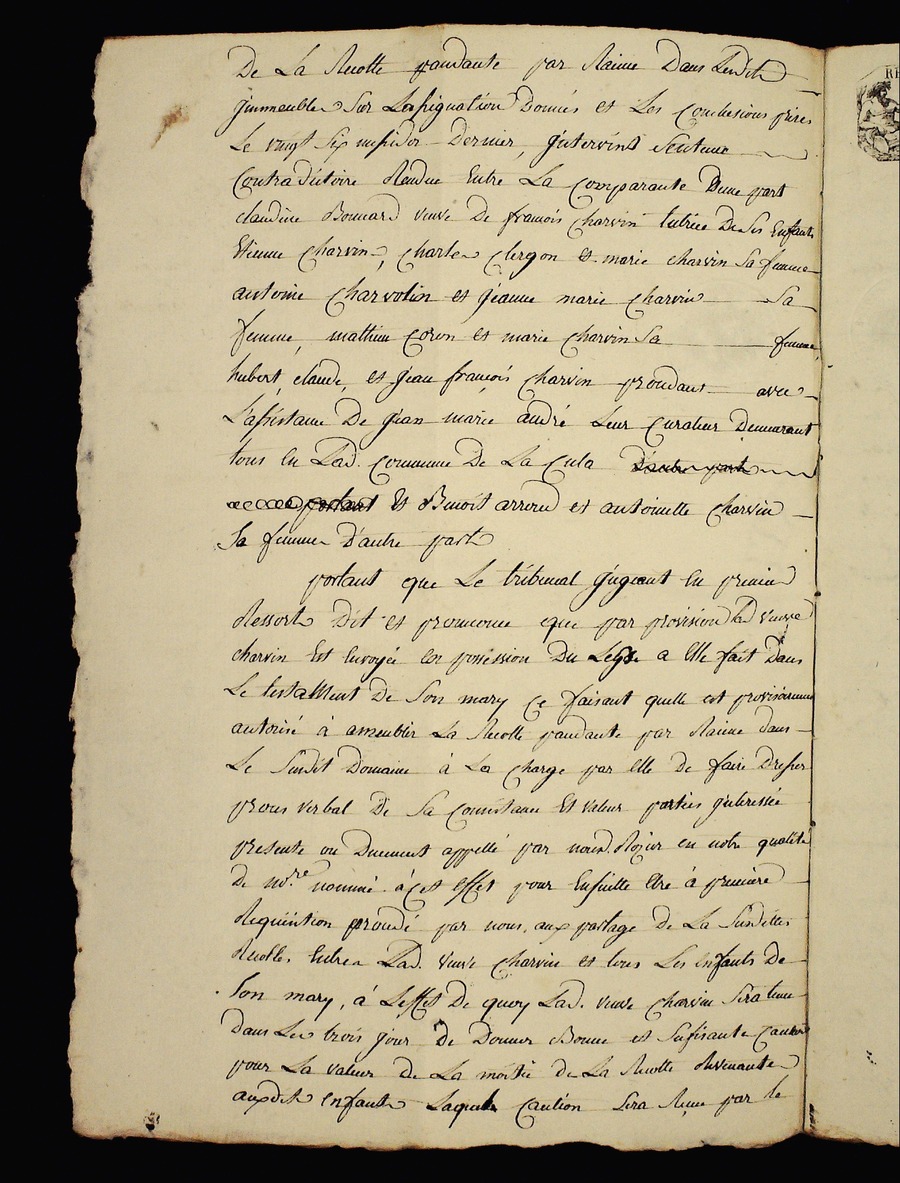 De La Recolte pandante par Racine Dans Lesdits
jmmeubles Sur Lassignation Donnés et Les Conclusions prises
Le vingt Six messidor Dernier, jntervint Sentence
Contradictoire Rendue Entre La Comparante D'une part
claudine Bonnard veuve De francois charvin tutrice De Ses Enfants
Etienne Charvin, Charles Clergon et marie charvin Sa femme
antoine Charvolin et jeanne marie charvin Sa
femme, mathieu Coron et marie charvin Sa femme,
hubert, claude, et jean francois Charvin procedant avec
L'assistance De jean marie andré Leur Curateur Demeurant
tous En Lad. Commune De La Cula D'autre part
portant Et Benoit arroud et antoinette charvin
Sa femme D'autre part
portant que Le tribunal jugeant En premier
Ressort Dit et prononce que par provision Lad veuve
charvin Est Envoyée En possession Du Legs a Elle fait Dans
Le testament De Son mary Ce faisant quelle est provisoirement
autorisé à ameublir La Recolte pandante par Racine dans
Le Susdit Domaine à La Charge par Elle De faire Dresser
procès verbal De Sa Consistance Et valeur parties jnteressée
presente ou Duement appellé par nousd. en notre qualité
De no.re nommé àcet Effet pour Ensuitte Etre à premiere
Requisition procedé par nous, aux partage De La Susditte
Recolte Entre Lad. veuve Charvin et tous Les Enfants De
Son mary, à Leffet De quoy Lad. veuve Charvin Sera tenue
Dans Les trois jour De Donner Bonne et Sufisante Caution
pour La valeur de La moitié de La Recolte Revenante
auxdits Enfants Laquelle Caution Sera Recue par le
RE